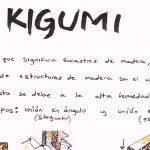 KIGUMI
que significa encastres de madera,
de estructuras de madera sin el u
sto se debe a la alta humedad
pos: unión en ángulo y unión e
(Shiguchi)